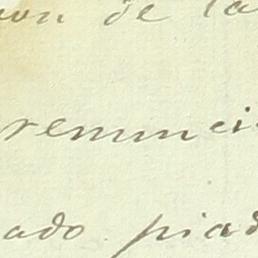 de la
renunci
ado piad